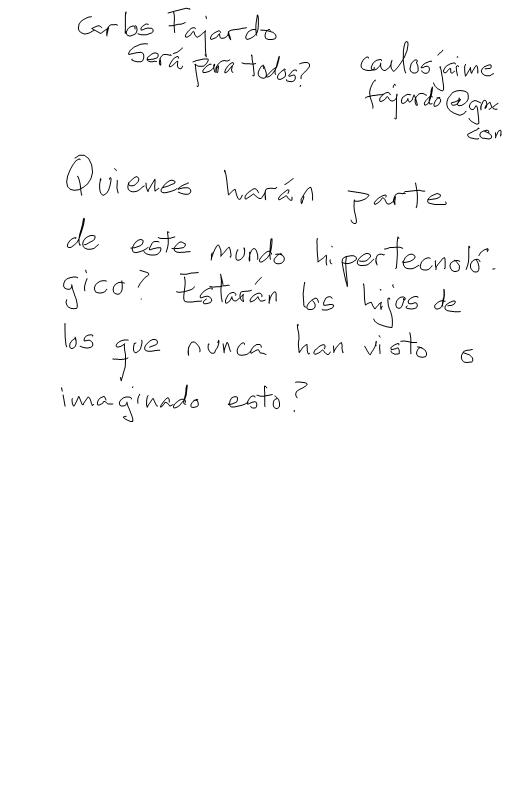 Carlos Fajardo
Será para todos?
carlosjaime
fajardo@gmx
com
Quienes harán parte
de este mundo hipertecnoló-
gico? Estarán los hijos de
los que nunca han visto o
imaginado esto?